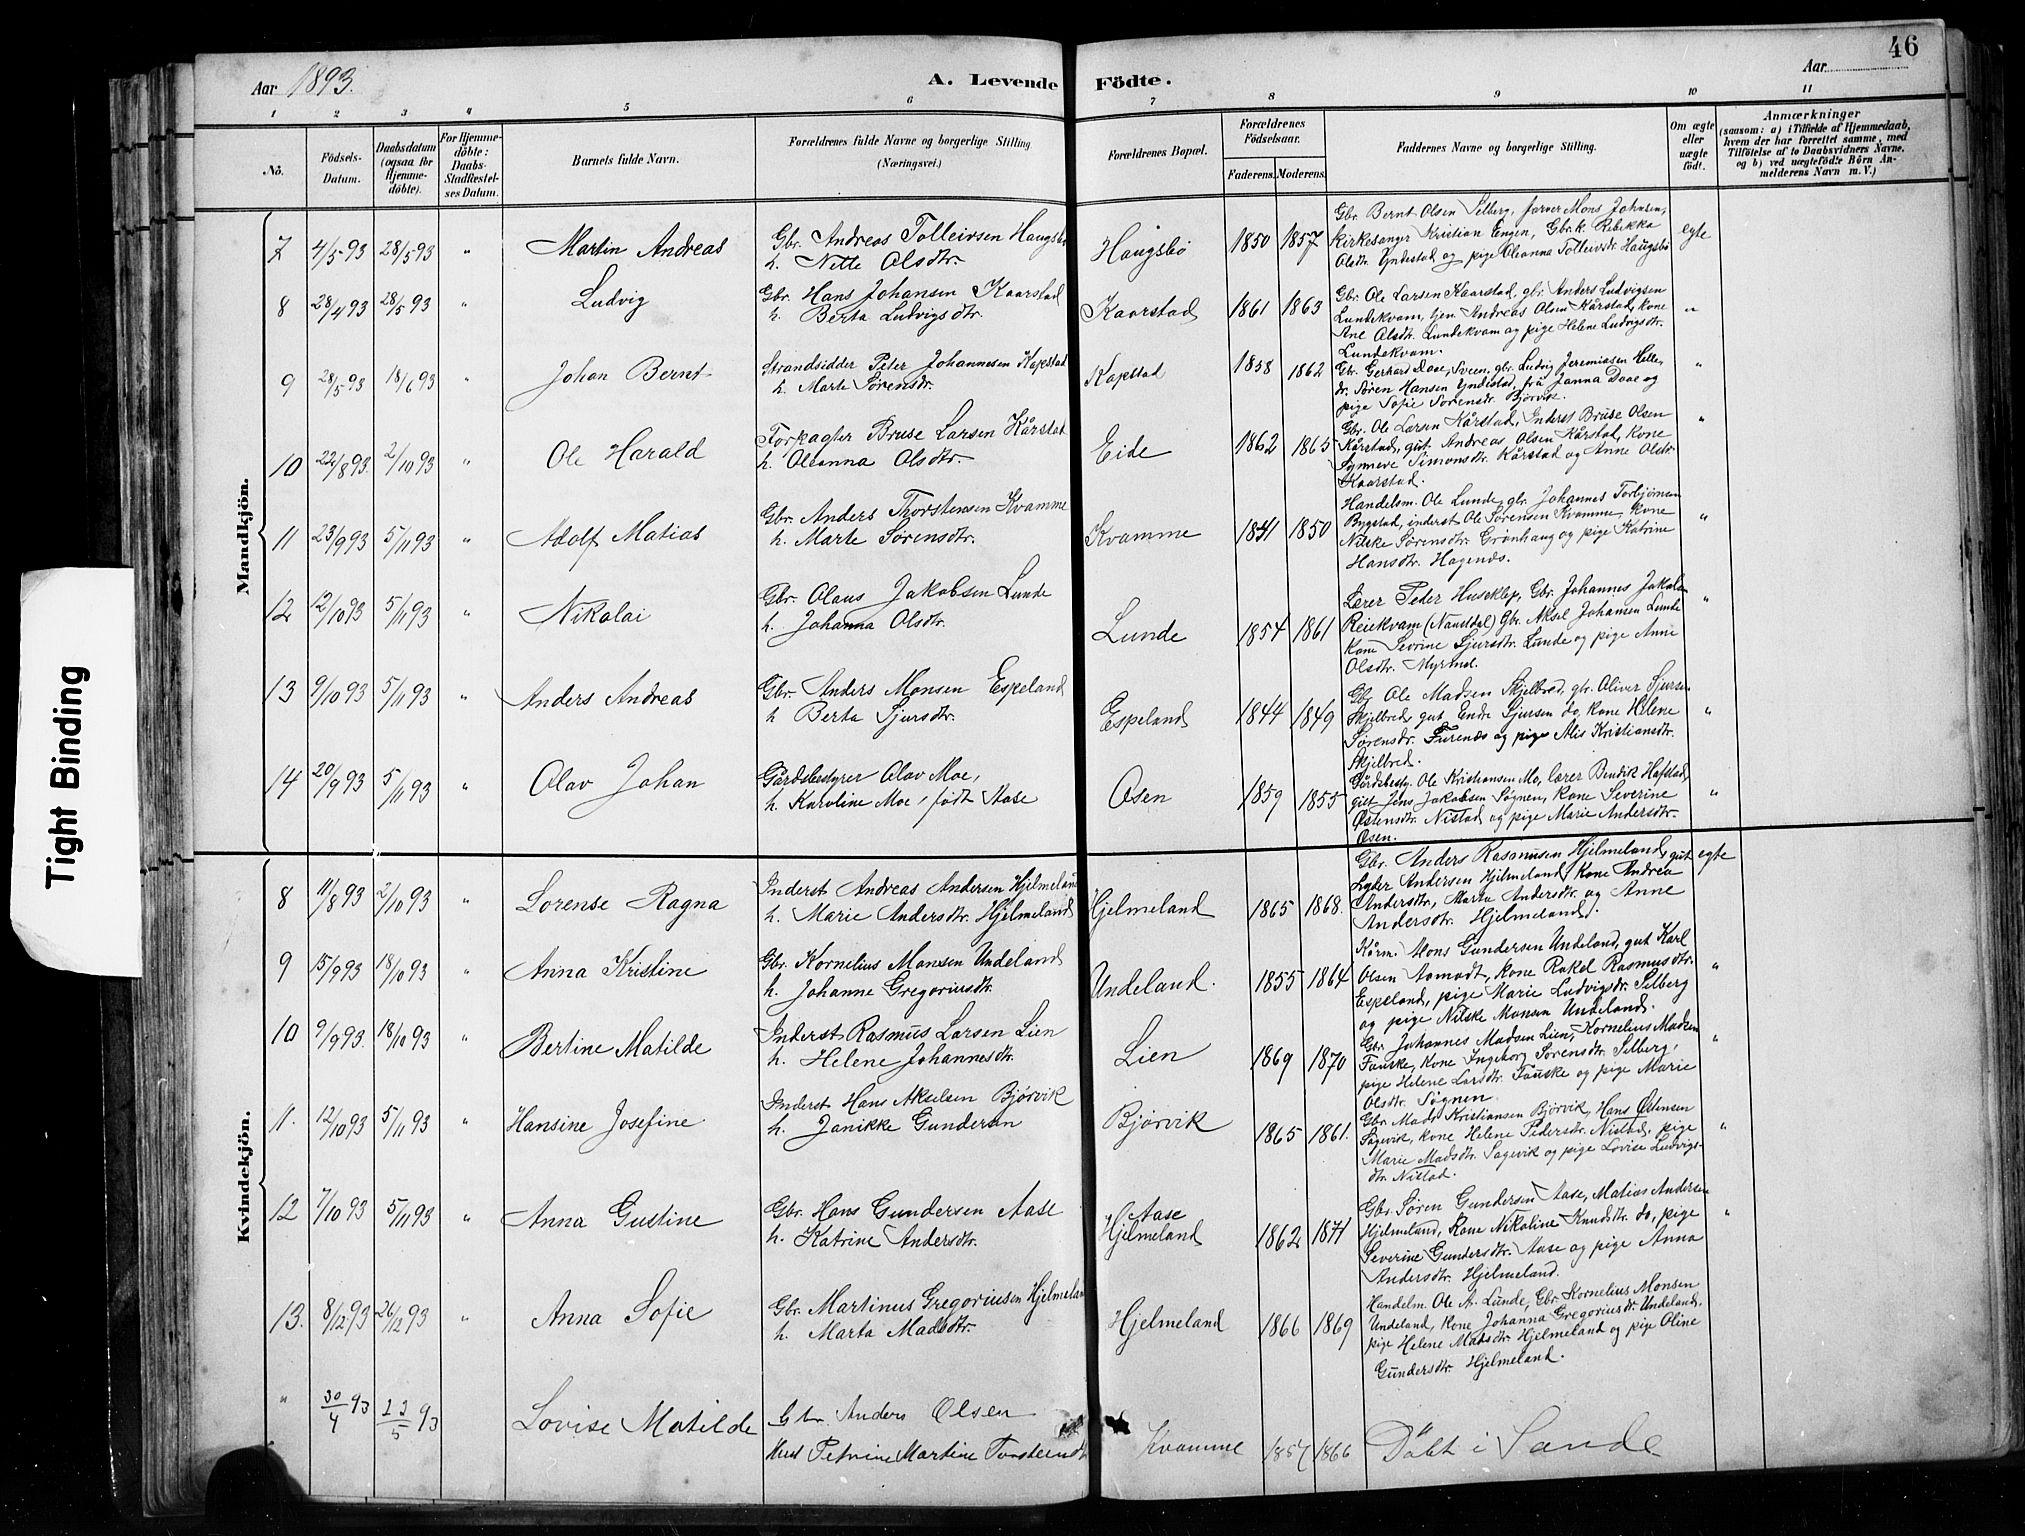 46
Aar 1893.
A. Levende Fødte.
Aar
1 2 3 4 5 6 7 8 9 10 11
No.
Födsels-Datum.
Daabsdatum (ogsaa for Hjemmedöbte).
For Hjemmedöbte: Daabs-Stadfæstelses Datum.
Barnets fulde Navn.
Forældrenes fulde Navne og borgerlige Stilling (Næringsvei).
Forældrenes Bopæl.
Forældrenes Födselsaar.
Faderens. Moderens.
Faddernes Navne og borgerlige Stilling.
Om ægte eller uægte födt.
Anmærkninger
(saasom: a) i Tilfælde af Hjemmedaab, hvem der har forrettet samme, med Tilföielse af to Daabsvidners Navne, og b) ved uægtefödte Börn Anmelderens Navn m. V.)
Mandkjön.
7 4/5 93 28/5 93 " Martin Andreas
Gbr. Andreas Tolleivsen Haugsbø
h. Nette Olsdtr.
Haugsbø 1850 1857
Gbr. Bernt Olsen Selberg, Mons Johnsen,
Kirkesanger Kristian Engen, Gbr.k. Rebikka
Olsdtr. Yndestad og pige Oleanna Tolleivsdr. Haugsbø
egte
8 28/4 93 28/5 93 " Ludvig
Gbr. Hans Johansen Kaarstad
h. Berta Ludvigsdtr.
Kaarstad 1861 1863
Gbr. Ole Larsen Kaarstad, gbr. Anders Ludvigsen
Lundekvam, tjen. Andreas Olsen Kårstad, kone
Ane Olsdtr. Lundekvam og pige Helene Ludvigsdtr.
Lundekvam.
"
9 28/5 93 18/6 93 " Johan Bernt
Strandsidder Peter Johannesen Kapstad
h. Marte Sørensdr.
Kapstad 1858 1862
Gbr. Gerhard Daae, Sveen, gbr. Ludvig Jeremiasen Helle,
dr. Søren Hansen Yndestad, frå Janna Daae og
pige Sofie Sørensdr. Bjørvik.
"
10 22/8 93. 2/10 93 " Ole Harald
Forpagter Bruse Larsen Kårstad
h. Oleanna Olsdtr.
Eide 1862 1865
Gbr. Ole Larsen Kårstad, Inderst Bruse Olsen
Kårstad, gut Andreas Olsen Kårstad, kone
Synneve Simonsdtr. Kårstad og Anne Olsdtr.
Kaarstad.
"
11 23/9 93 5/11 93 " Adolf Matias
Gbr. Anders Thorstensen Kvamme
h. Marte Sørensdtr.
Kvamme 1841 1850
Handelsm. Ole Lunde, gbr. Johannes Torbjørnsen
Bygstad, inderst Ole Sørensen Kvamme, kone
Nilske Sørensdtr. Grønhaug og pige Katrine
Hansdtr. Hagenæs.
"
12 12/10 93 5/11 93 " Nikolai
Gbr. Olaus Jakobsen Lunde
h. Johanna Olsdtr.
Lunde 1854 1861
Lærer Peder Huseklep, Gbr. Johannes Jakobsen
Reiekvam (Naustdal) Gbr. Aksel Johansen Lunde
kone Sevrine Sjursdtr. Lunde og pige Anne
Olsdtr. Myrmel.
"
13 9/10 93 5/11 93 " Anders Andreas
Gbr. Anders Monsen Espeland
h Berta Sjursdtr.
Espeland 1844 1849
Gbr Ole Madsen Skjelbred, gbr. Oliver Sjursen
Skjelbred, gut Ende Sjursen do, kone Helene
Sørensdr. Furenæs og pige Alis Kristiansdtr.
Skjelbred.
"
14 20/9 93 5/11 93 " Olav Johan
Gårdsbestyrer Olav Moe,
h. Karoline Moe, født Aase
Osen 1859 1855
Gårdsbesty. Ole Kristiansen Mo, lærer Bendik Hafstad,
gut Jens Jakobsen Søgnen, kone Severine
Østensdtr. Nistad og pige Marie Andersdtr.
Osen.
"
Kvindekjön.
8 11/8 93 2/10 93 " Lorense Ragna
Inderst Andreas Andersen Hjelmeland
h. Marie Andersdtr. Hjelmeland
Hjelmeland 1865 1868.
Gbr. Anders Rasmusen Hjelmeland, gut
Lyder Andersen Hjelmeland, kone Andrea
Andersdtr, Marta Andersdtr. og Anne
Andersdtr. Hjelmeland.
egte
9 15/9 93 18/10 93 " Anna Kristine
Gbr. Kornelius Monsen Undeland
h. Johanne Gregoriusdtr.
Undeland. 1855 1864
Kårm. Mons Gundersen Undeland, gut Karl
Olsen Aamodt, kone Rakel Rasmusdtr.
Espeland, pige Marie Ludvigsdr. Selberg
og pige Nilske Monsen Undeland.
"
10 9/9 93. 18/10 93 " Bertine Matilde
Inderst Rasmus Larsen Lien
h. Helene Johannesdtr.
Lien 1869 1870
Gbr. Johannes Madsen Lien, Kornelius Madsen
Fauske, kone Ingeborg Sørensdtr. Selberg,
pige Helene Larsdtr. Fauske og pige Marie
Olsdtr. Søgnen.
"
11. 12/10 93 5/11 93 " Hansine Josefine
Inderst Hans Akselsen Bjørvik
h. Janikke Gundersen
Bjørvik 1865 1861.
Gbr. Mads Kristiansen Bjørvik, Hans Østensen
Sagevik, kone Helene Pedersdtr. Nistad, pige
Marie Madsdtr. Sagevik og pige Lovise Ludvigs-
dtr Nistad.
"
12 7/10 93 5/11 93 " Anna Gustine
Gbr. Hans Gundersen Aase
h. Katrine Andersdtr.
Aase
Hjelmeland 1862 1871
Gbr. Søren Gundersen Aase, Matias Andersen
Hjelmeland, Kone Nikoline Knudsdtr. do, pige
Severine Gundersdtr. Aase og pige Anna
Andersdtr. Hjelmeland.
"
13. 8/12 93 26/12 93 " Anna Sofie
Gbr. Martinus Gregoriusen Hjelmeland
h. Marta Madsdtr.
Hjelmeland 1866 1869
Handelm. Ole A. Lunde, Gbr. Kornelius Monsen
Undeland, kone Johanna Gregoriusdr. Undeland,
pige Helene Madsdtr. Hjelmeland og pige Oline
Gundersdtr. Hjelmeland.
" 30/4 93 /5 93 Lovise Matilde
Gbr Anders Olsen
Hust Petrine Martine
Kvamme 1857 1866
Døbt i Sande
Tight Binding